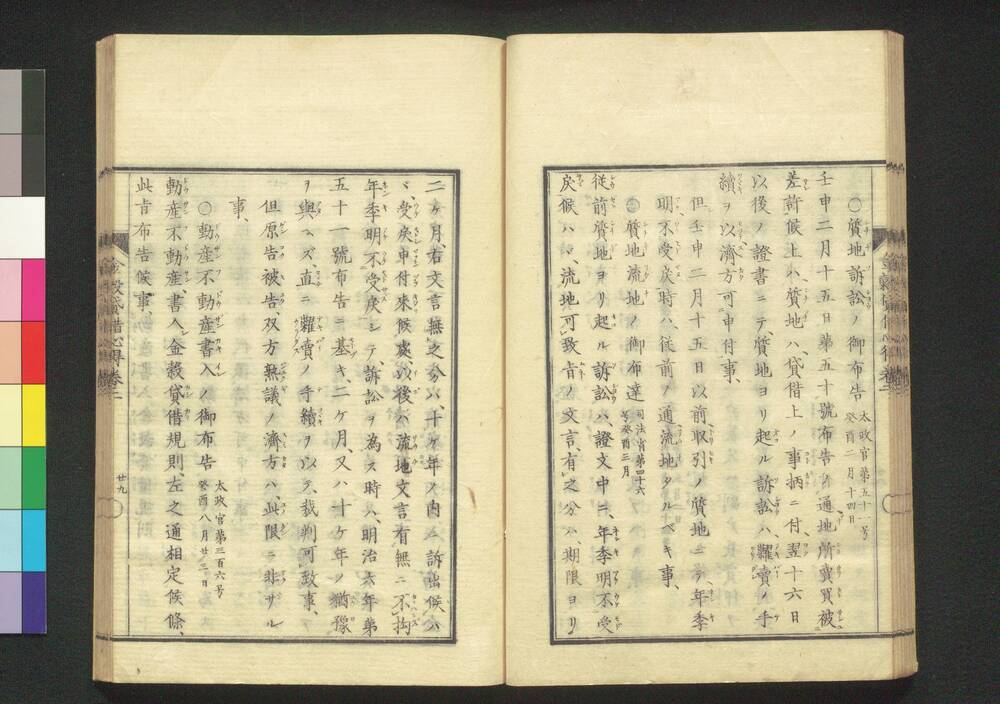 ○質地訴訟ノ御布告 太政官第五十一号 癸酉二月十四日
壬申二月十五日第五十號布告ノ通地所賣買被
差許候上ハ、質地ハ貸借上ノ事柄ニ付、翌十六日
以後ノ證書ニテ、質地ヨリ起ル訴訟ハ、糶賣ノ手
續ヲ以濟方可申付事、
但壬申二月十五日以前取引ノ質地ニテ、年季
明不受戻時ハ、従前ノ通流地タルベキ事、
○質地流地ノ御布達 司法省第四十六号 癸酉三月
従前質地ヨリ起ル訴訟ハ、證文中ニ、年季明不受
戻候ハヽ、流地可致旨ノ文言、有之分ハ、期限ヨリ
二ヶ月、右文言無之分ハ十ヶ年ノ内ニ訴出候ハ
ヽ、受戻申付來候處、以後ハ流地文言有無ニ不拘
年季明不受戻シテ、訴訟ヲ為ス時ハ、明治六年第
五十一號布告ニ基キ、二ケ月又ハ十ケ年ノ猶豫
ヲ與ヘズ、直ニ糶賣ノ手續ヲ以テ、裁判可致事、
但原告被告、双方熟議ノ濟方ハ、此限ニ非サル
事、
○動産不動産書入ノ御布告 太政官第三百六号 癸酉八月廿三日
動産不動産書入金穀貸借規則、左之通相定候條、
此旨布告候事、
金穀貸借心得巻二
廿九